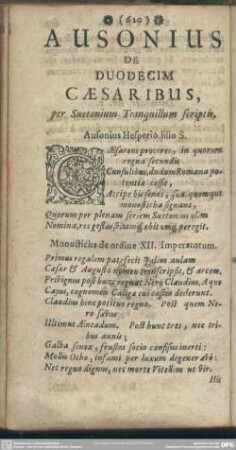 (620)
AUSONIUS
DE
DUODECIM
CÆSARIBUS,
per Suetonium Tranquillum scriptis,
Ausonius Hesperio filio S.
CÆsareos proceres, in quorum
regna secundis
Consulibus, dudum Romana po-
tentia cessit,
Accipe bis senos, sua quemque
monosticha signant,
Quorum per plenam seriem Suetonius olim
Nomina, res gestas, vitamq́, obitumq́, peregit.
Monosticha de ordine XII. Imperatorum.
Primus regalem patefecit Julius aulam
Cæsar & Augusto nomen transcripsit, & arcem,
Privignus post hunc regnat Nero Claudius, à quo
Cæsar, cognomen Caliga cui castra dederunt.
Claudius hinc potitur regno. Post quem Ne-
ro sævus
Ultimus Æneadum. Post hunc tres, nec tri-
bus annis;
Galba senex, frustra socio confisus inerti:
Mollis Otho, infami per luxum degener ævo:
Nec regno dignus, nec morte Vitellius ut vir.
His